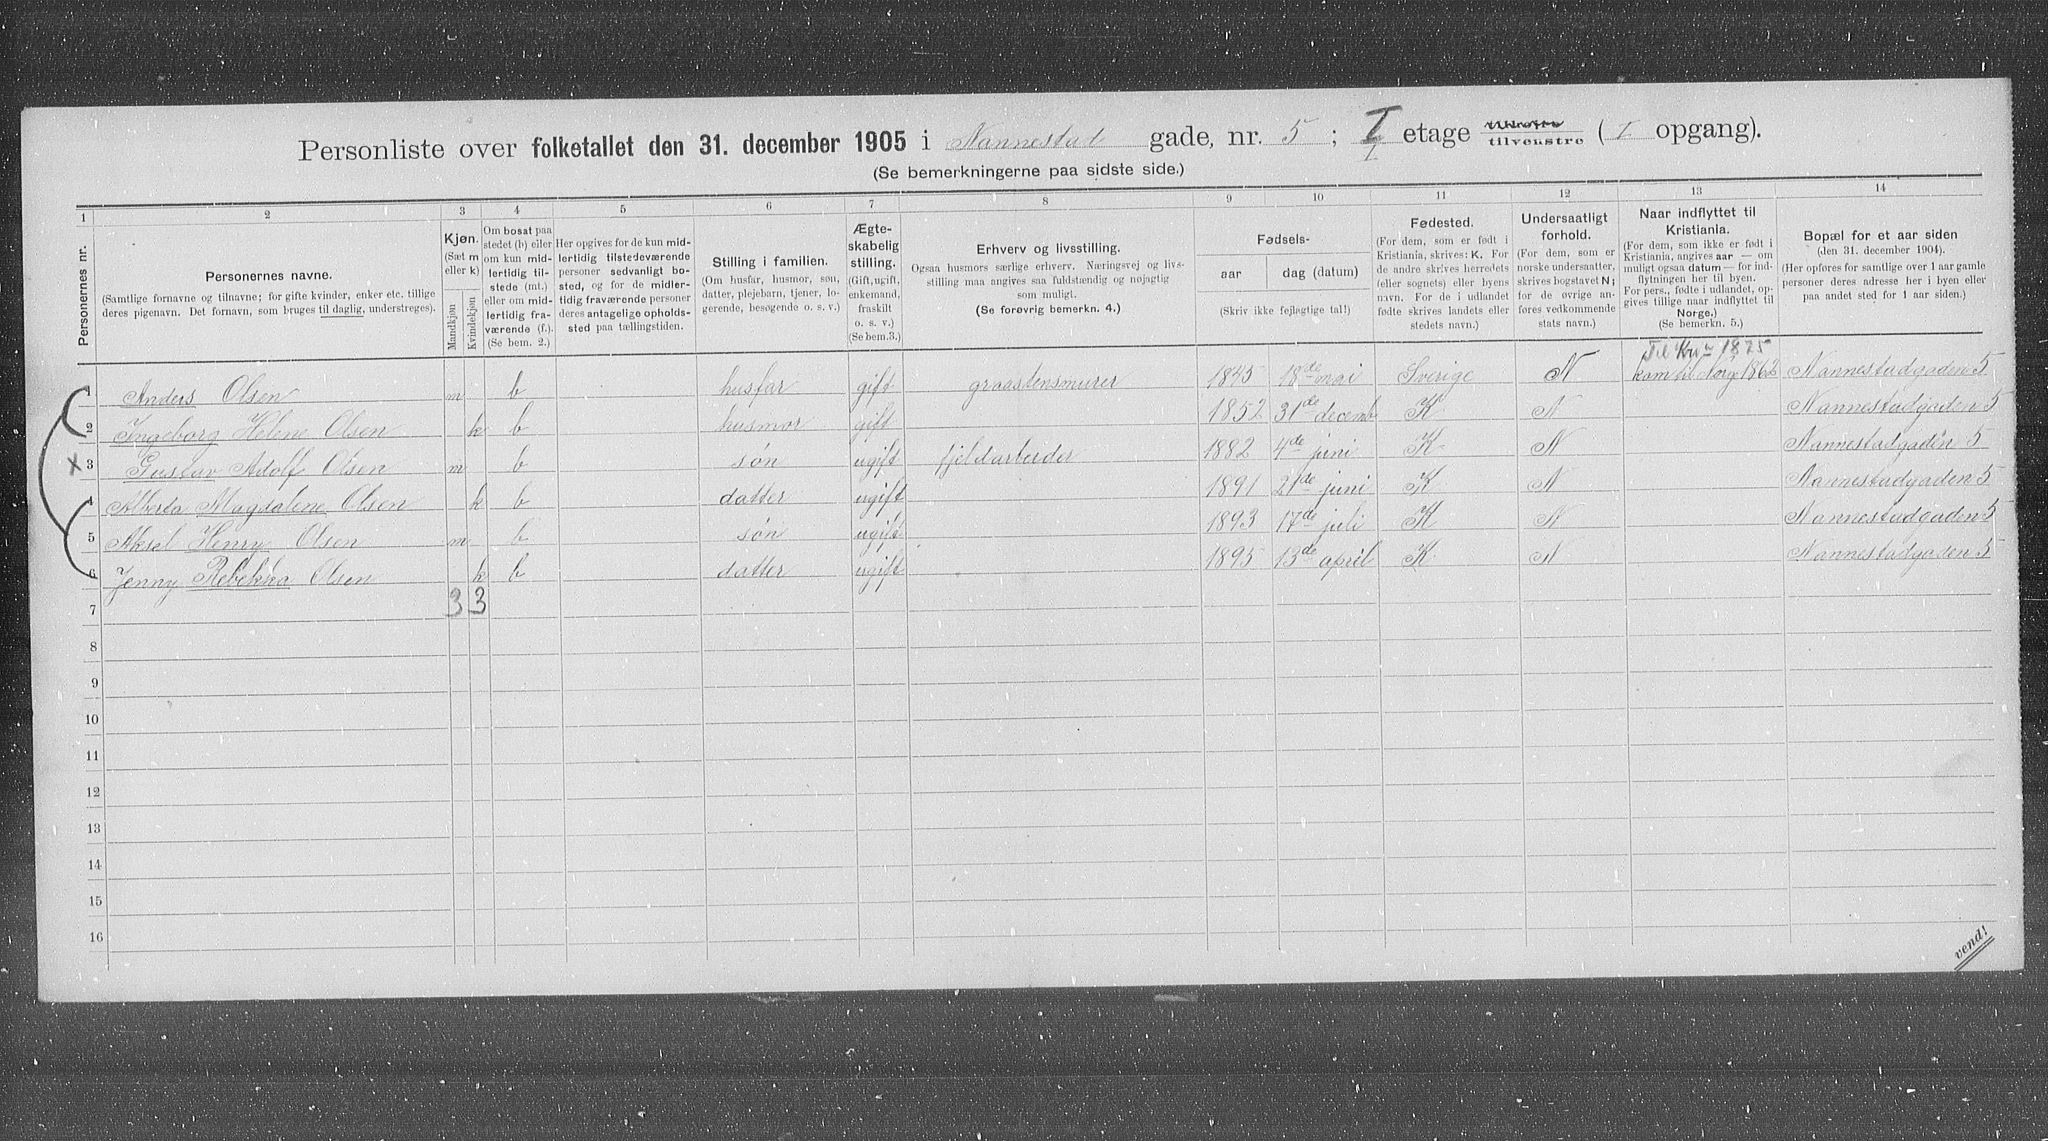 Personliste over folketallet den 31. december 1905 i Nannestad gade, nr. 5; I etage tilhøire tilvenstre (I opgang).
I
(Se bemerkningerne paa sidste side.)
1 2 3 4 5 6 7 8 9 10 11 12 13 14
Personernes nr.
Personernes navne.
(Samtlige fornavne og tilnavne; for gifte kvinder, enker etc. tillige
deres pigenavn. Det fornavn, som bruges til daglig, understreges).
Kjøn.
(Sæt m
eller k)
Mandkjøn
Kvindekjøn
Om bosat paa
stedet (b) eller
om kun mid-
lertidig til-
stede (mt.)
eller om mid-
lertidig fra-
værende (f.).
(Se bem. 2.)
Her opgives for de kun mid-
lertidig tilstedeværende
personer sedvanligt bo-
sted, og for de midler-
tidig fraværende personer
deres antagelige opholds-
sted paa tællingstiden.
Stilling i familien.
(Om husfar, husmor, søn,
datter, plejebarn, tjener, lo-
gerende, besøgende o. s. v.)
Ægte-
skabelig
stilling.
(Gift, ugift,
enkemand,
fraskilt
o. s. v.)
(Se bem.3.)
Erhverv og livsstilling.
Ogsaa husmors særlige erhverv. Næringsvej og livs-
stilling maa angives saa fuldstændig og nøjagtig
som muligt.
(Se forøvrig bemerkn. 4.)
Fødsels-
aar
dag (datum)
(Skriv ikke fejlagtige tal!)
Fødested.
(For dem, som er født i
Kristiania, skrives: K. For
de andre skrives herredets
(eller sognets) eller byens
navn. For de i udlandet
fødte skrives landets eller
stedets navn.)
Undersaatligt
forhold.
(For dem, som er
norske undersaatter,
skrives bogstavet N;
for de øvrige an-
føres vedkommende
stats navn.)
Naar indflyttet til
Kristiania.
(For dem, som ikke er født i
Kristiania, angives aar — om
muligt ogsaa datum — for ind-
flytningen her til byen.
For pers., fødte i udlandet, op-
gives tillige naar indflyttet til
Norge.)
(Se bemerkn. 5.)
Bopæl for et aar siden
(den 31. december 1904).
(Her opføres for samtlige over 1 aar gamle
personer deres adresse her i byen eller
paa andet sted for 1 aar siden.)
Til Kr.a 1875
1 Anders Olsen m b husfar gift graastensmurer 1845 18de mai Sverige N kom til Norge 1862 Nannestadgaden 5
2 Ingeborg Helene Olsen k b husmor gift 1852 31de decemb K N Nannestadgaden 5
x 3 Gustav Adolf Olsen m b søn ugift fjeldarbeider 1882 4de juni K N Nannestadgaden 5
4 Alberta Magdalene Olsen k b datter ugift 1891 21de juni K N Nannestadgaden 5
5 Aksel Henry Olsen m b søn ugift 1893 17de juli K N Nannestadgaden 5
6 Jenny Rebekka Olsen k b datter ugift 1895 13de april K N Nannestadgaden 5
7 3 3
8
9
10
11
12
13
14
15
16
vend!